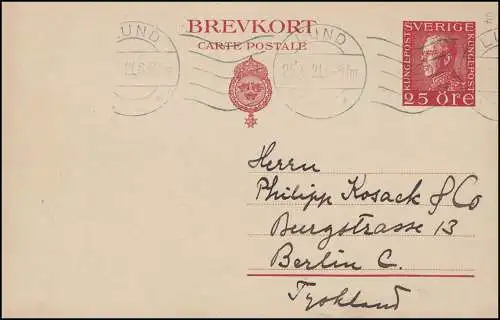 BREVKORT
CARTE POSTALE
LUND
LUND
SVERIGE
KUNGLPOST
KUNGLPOST
25 ÖRE
Herrn
Philipp Kosack & Co
Burgstrasse 13
Berlin C.
Tyskland